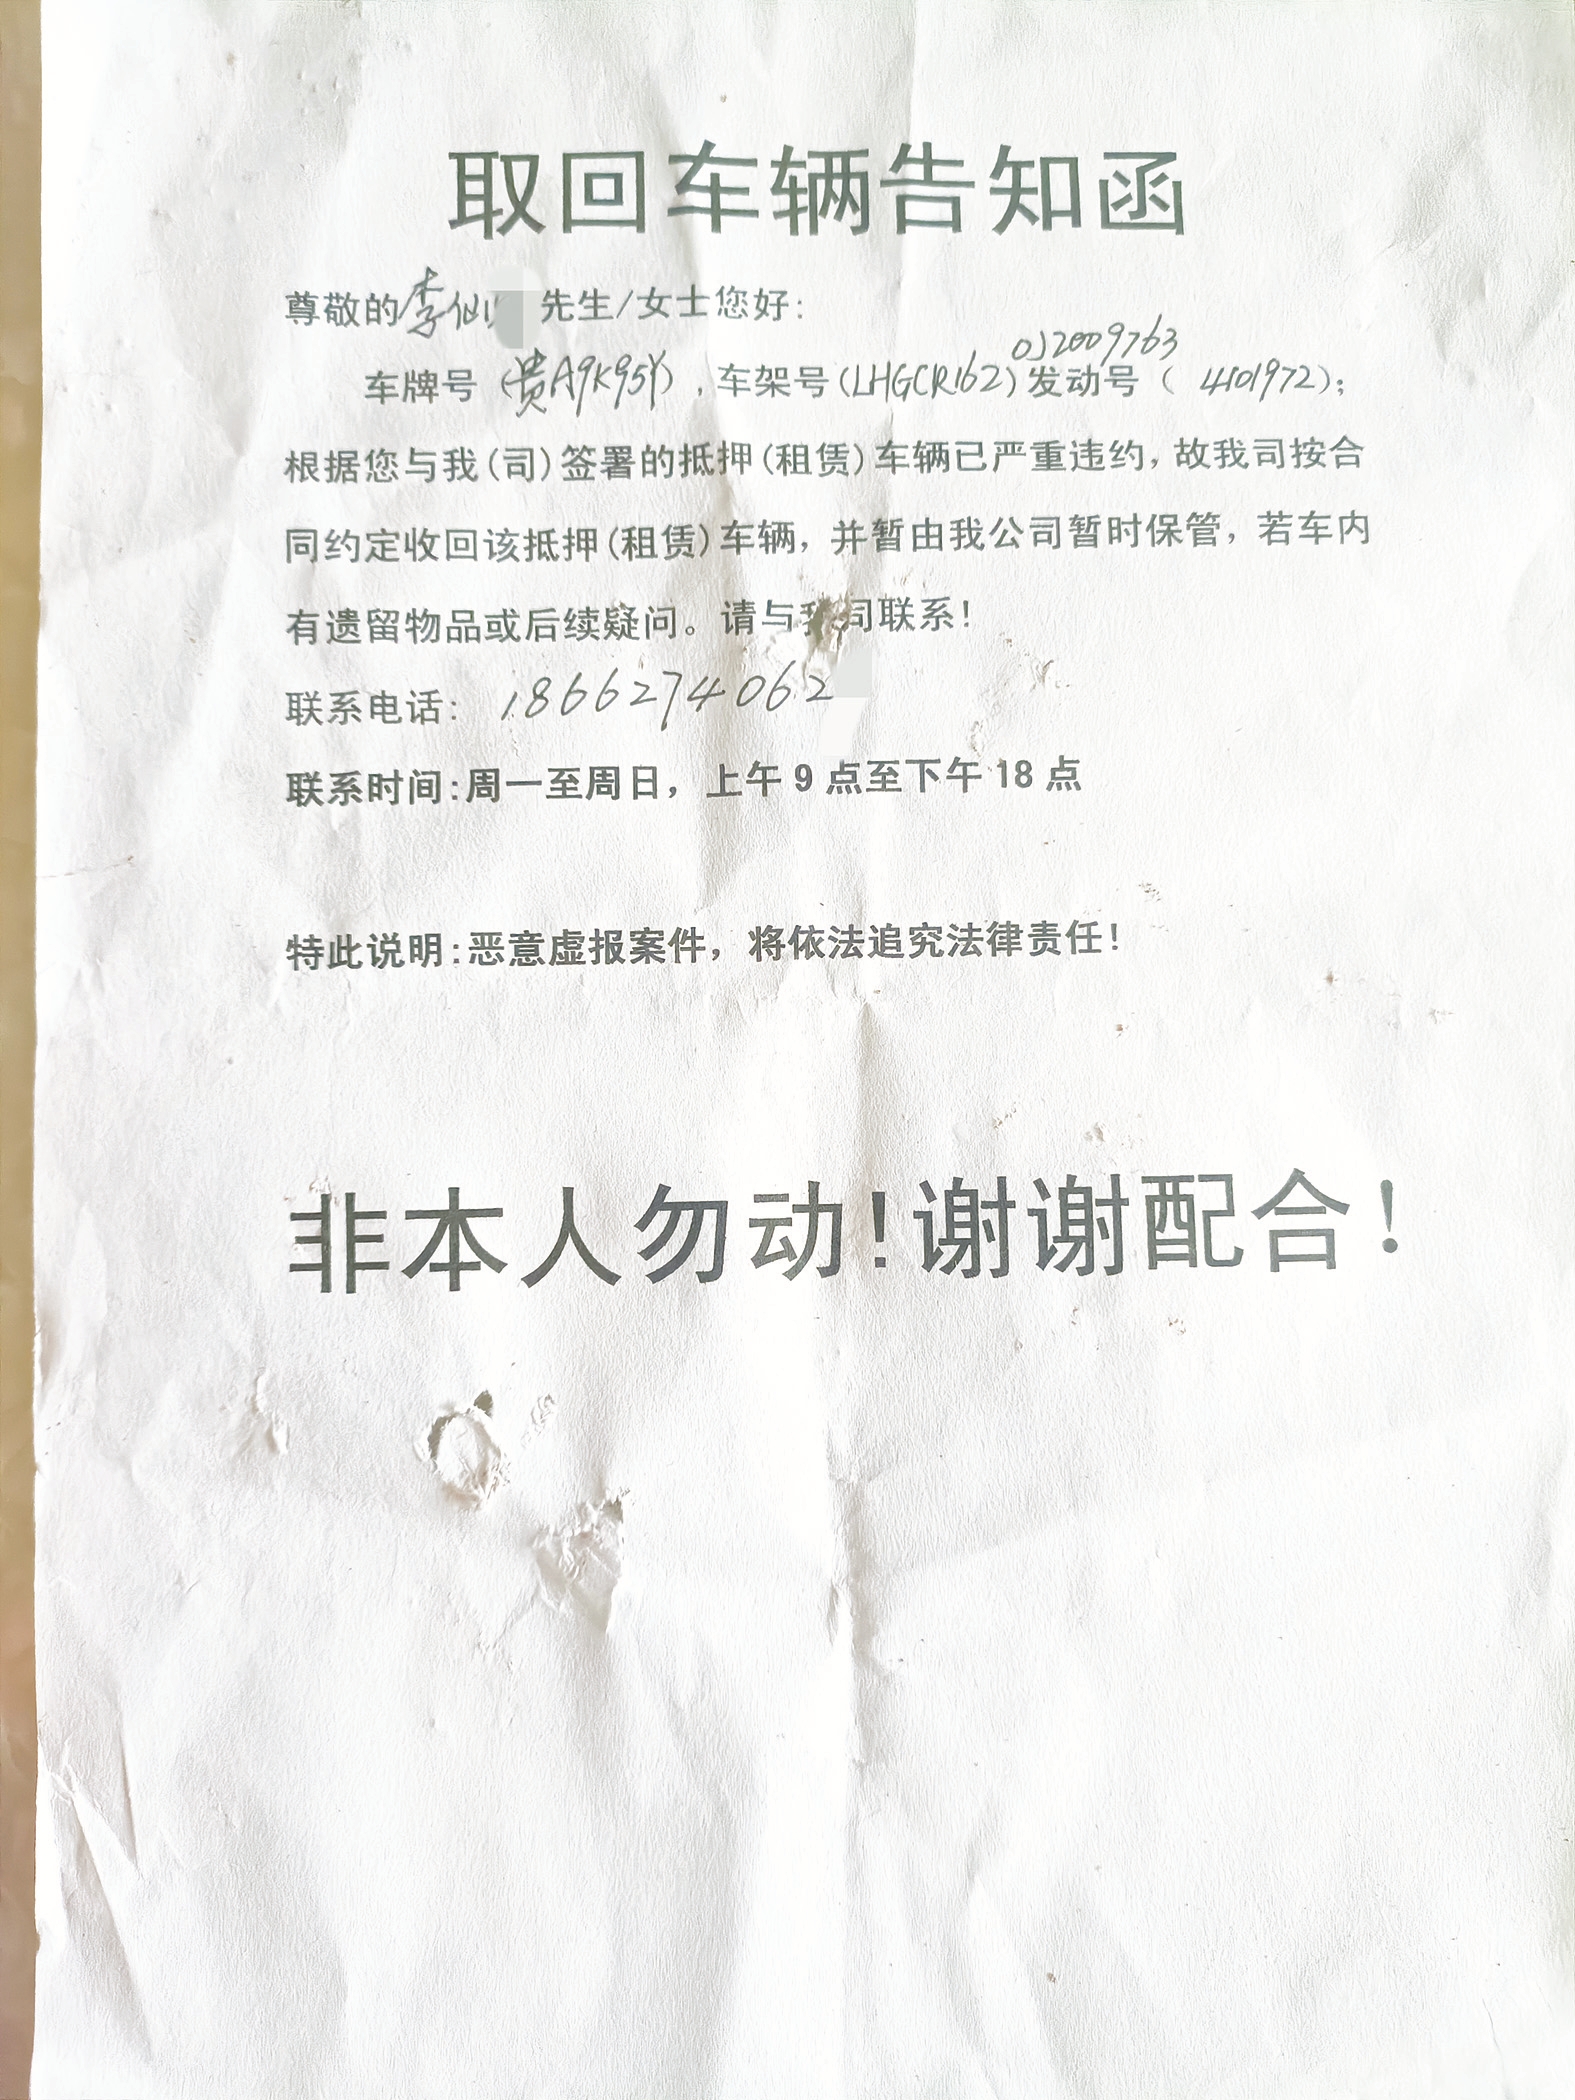 取回车辆告知函
尊敬的李仙 先生/女士您好:
0J2009763
车牌号(贵A9K95Y),车架号(LHGCR162)发动号( 4101972);
根据您与我(司)签署的抵押(租赁)车辆已严重违约,故我司按合
同约定收回该抵押(租赁)车辆,并暂由我公司暂时保管,若车内
有遗留物品或后续疑问。请与我司联系!
联系电话: 1866274062
联系时间:周一至周日,上午9点至下午18点
特此说明:恶意虚报案件,将依法追究法律责任!
非本人勿动!谢谢配合!